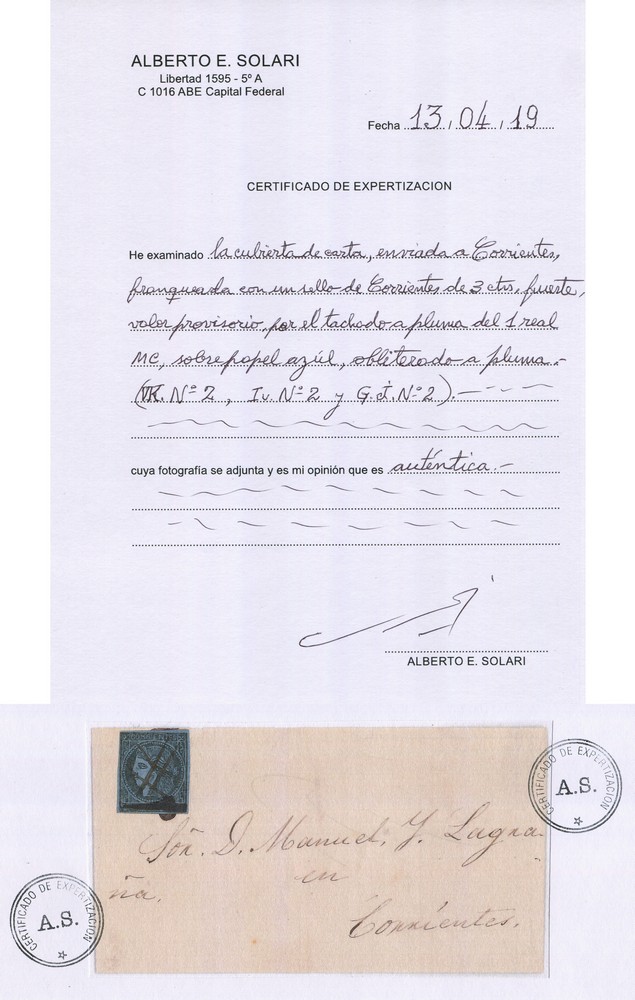 ALBERTO E. SOLARI
Libertad 1595 - 5º A
C 1016 ABE Capital Federal
Fecha 13 / 04 / 19
CERTIFICADO DE EXPERTIZACION
He examinado la cubierta de carta, enviada a Corrientes,
franqueada con un sello de Corrientes de 3 ctvs. fuerte,
valor provisorio, por el tachado a pluma del 1 real
MC, sobre papel azúl, obliterado a pluma.-
(VK. Nº 2, Iv. Nº 2 y G.J. Nº 2).-
cuya fotografía se adjunta y es mi opinión que es auténtica.-
ALBERTO E. SOLARI
CERTIFICADO DE EXPERTIZACION
A.S.
Sōr. D. Manuel, Y. Lagra-
ña.
en
Corrientes.
CERTIFICADO DE EXPERTIZACION
A.S.